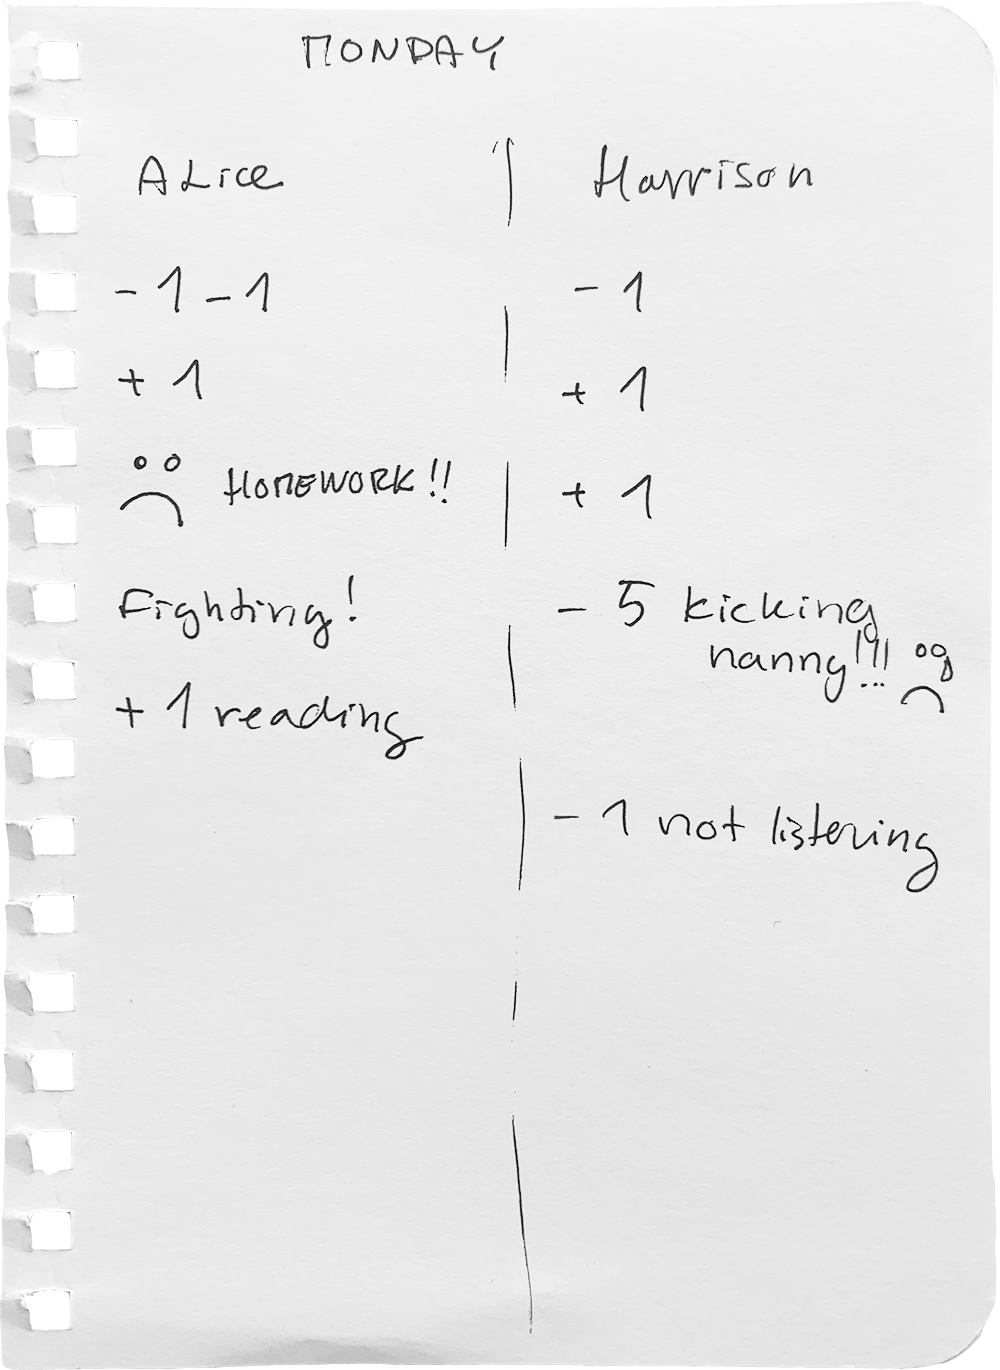 MONDAY
ALice
- 1 - 1
+ 1
HOMEWORK!!
Fighting!
+ 1 reading
Harrison
- 1
+ 1
+ 1
- 5 kicking
nanny!!!
- 1 not listening